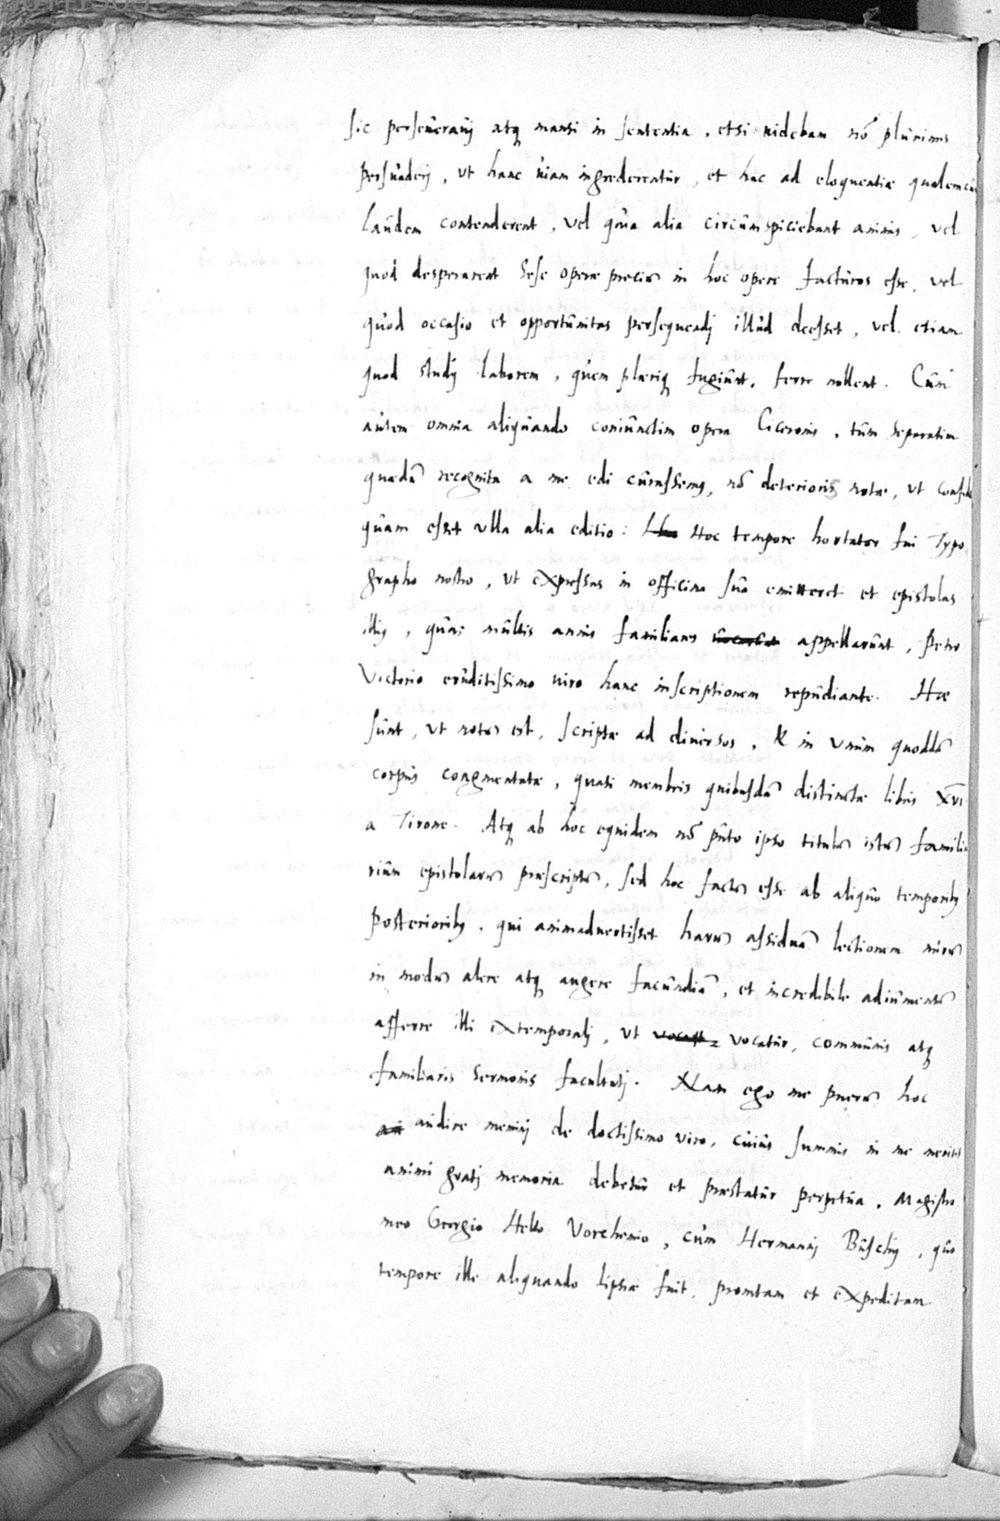 sic perseuerauj atq mansi in sententia, etsi uidebam nō plurimis
persuaderj, ut hanc uiam ingrederentur, et hac ad eloquentiæ qualemcun
laudem contenderent, vel quia alia circumspiciebant animis, vel
quod desperarent sese operæ preciū in hoc opere facturos esse, vel
quod occasio et opportunitas persequendj illud deesset, vel etiam
quod studij laborem, quem pleriq fugiunt, ferre nollent. Cum
autem omnia aliquando coniunctim opera Ciceronis, tum separatim
quædā recognita a me edi curassemq, nō deterioris notæ, ut
quam esset ulla alia editio: Hoc tempore hortator fui Typo
grapho nostro, ut expressas in officina sua emitteret et epistolas
illas, quas multis annis familiares appellarunt, Petro
Victorio eruditissimo uiro hanc inscriptionem repudiante. Hæ
sunt, ut notū est, scriptæ ad diuersos, & in vnum quoddā
corpus coagmentatæ, quasi membris quibusdā distinctæ libris XVI
a Tirone. Atq ab hoc equidem nō puto ipso titulū istū familia
rium epistolarū præscriptū, sed hoc factū esse ab aliquo temporib
posteriorib, qui animaduertisset harū assiduā lectionem mirū
in modū alere atq augere facundiā, et incredibile adiumentū
afferre illi extemporalj, ut vocatur, communis atq
familiaris sermonis facultatj. Nam ego me puerū hoc
audire meminj de doctissimo viro, cuius summis in me meritis
animi gratj memoria debetur et præstatur perpetua, Magistro
meo Georgio Helto Vorchemio, cum Hermannj Buschij, quo
tempore ille aliquando lipsiæ fuit, promtam et expeditam